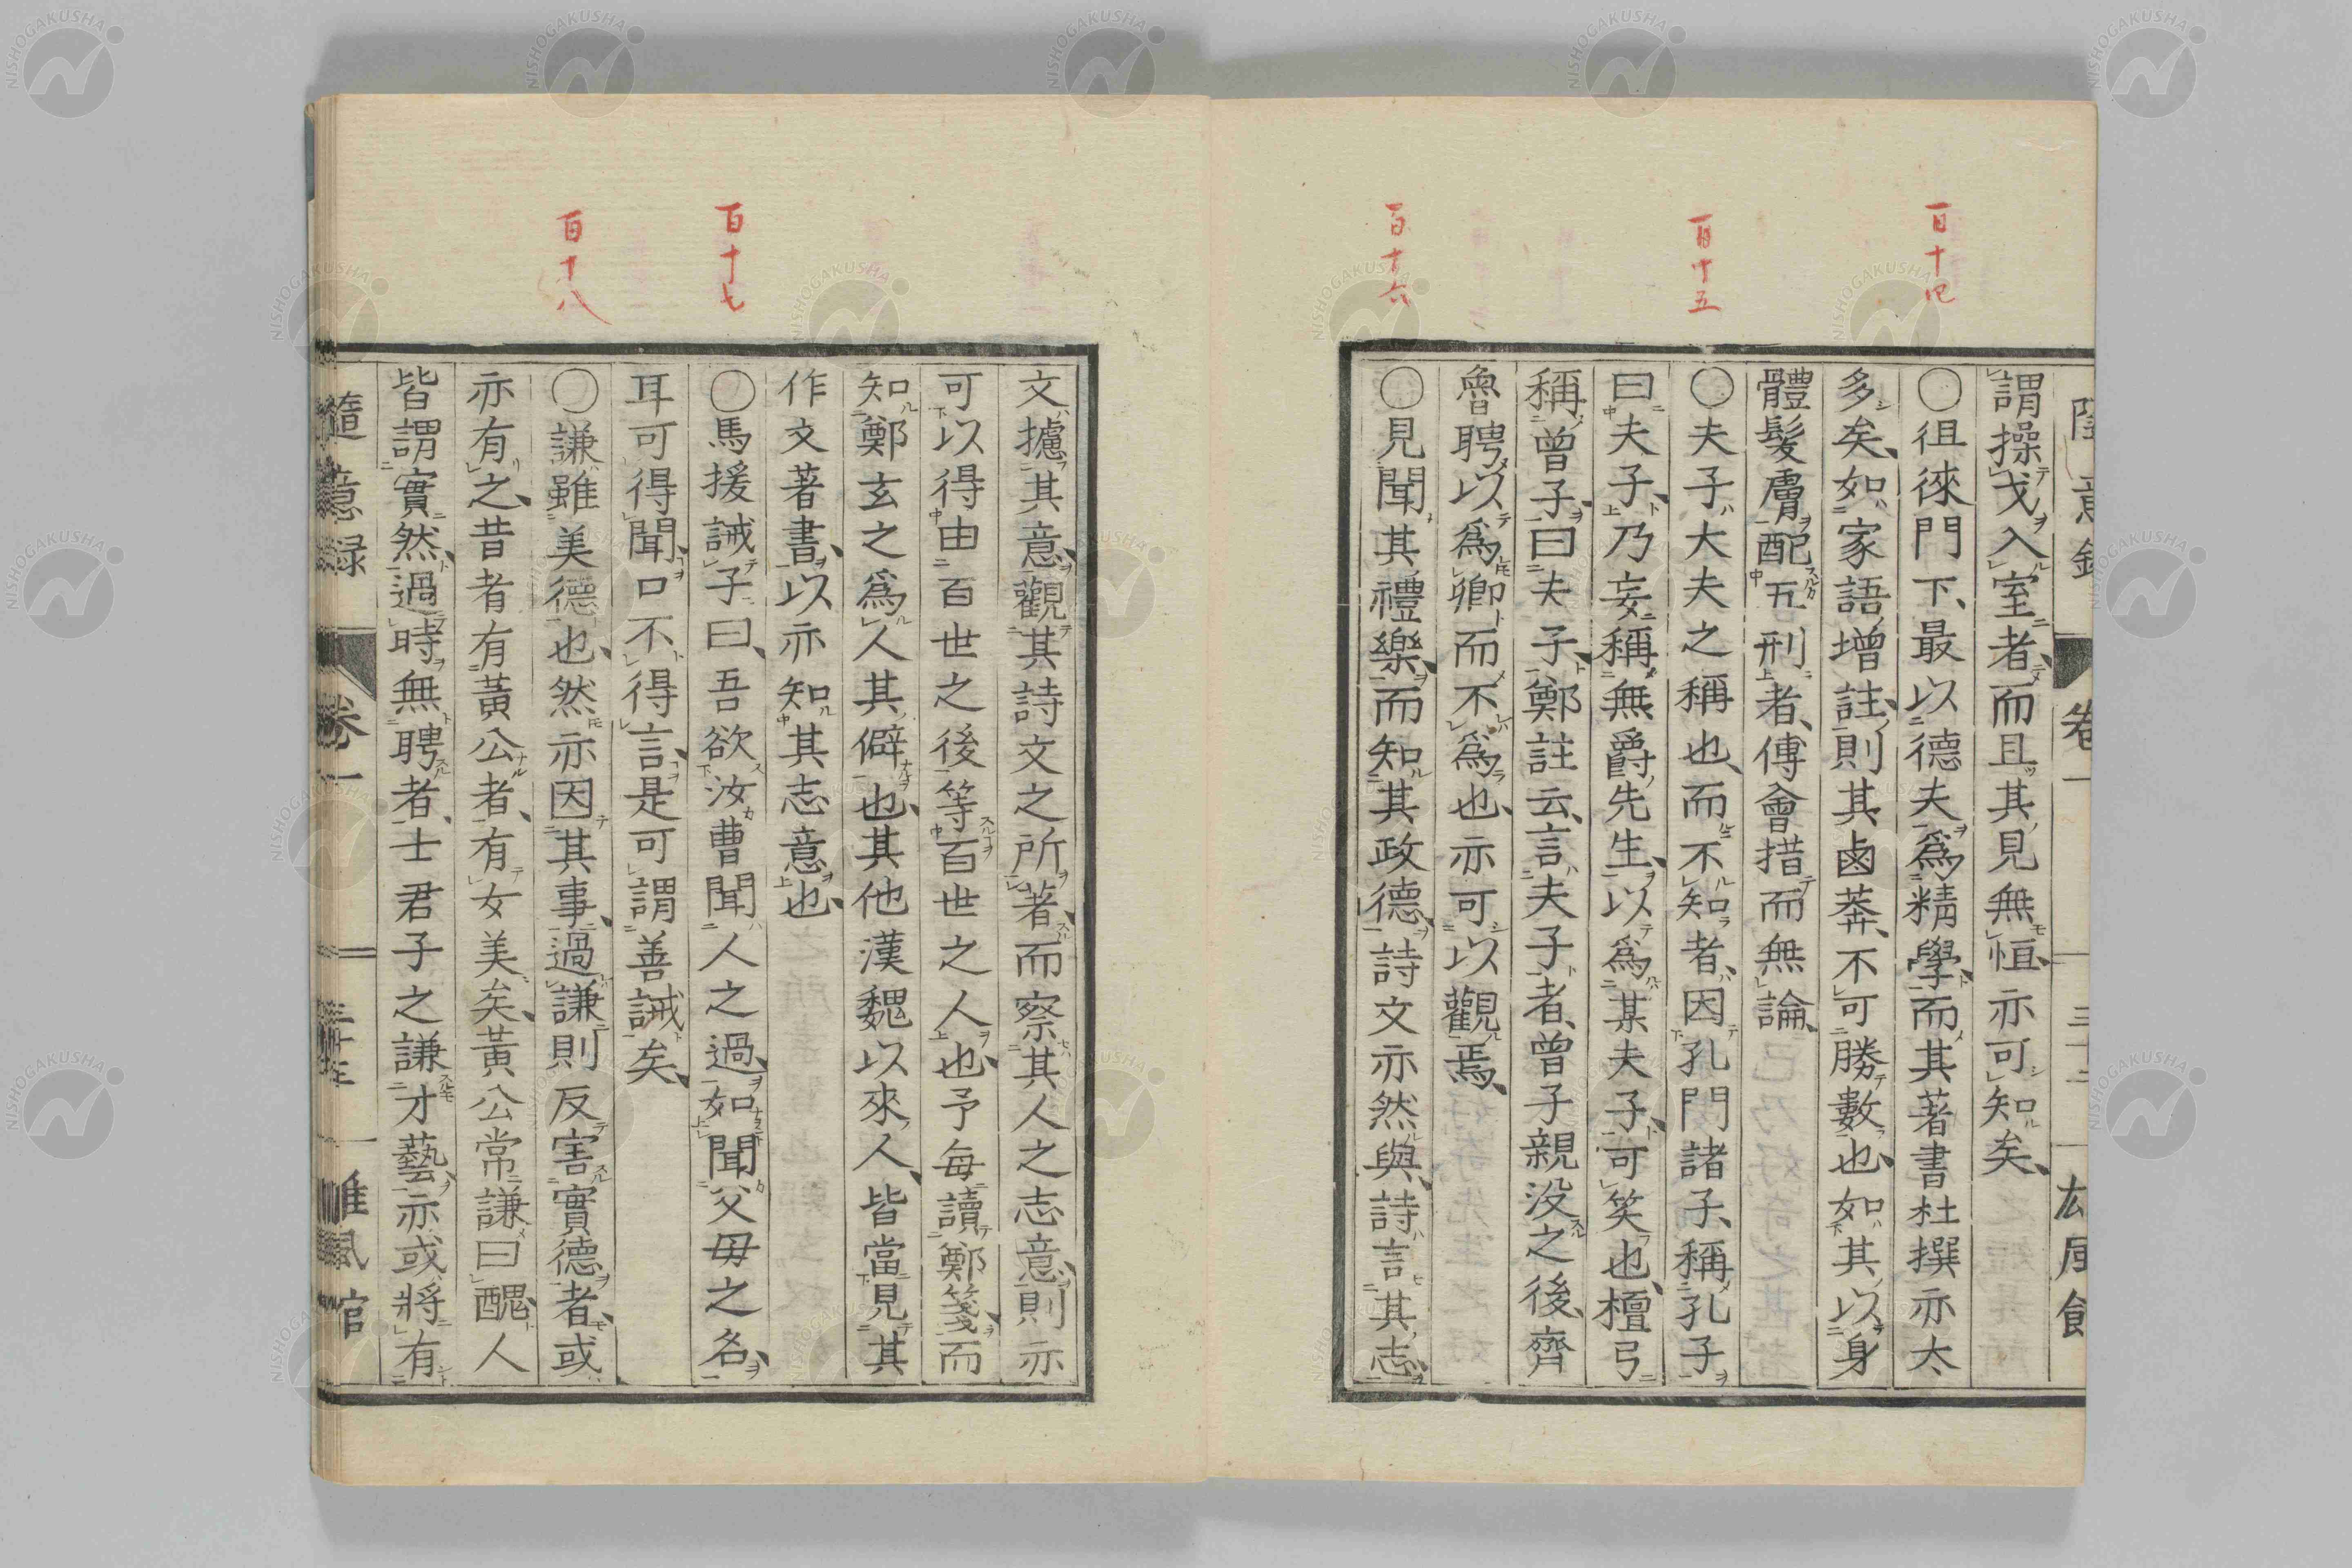 百十四
百十五
百十六
隨意録 卷一
謂操戈入室者而且其見無恒亦可知矣
○徂徠門下最以德夫爲精學而其著書杜撰亦太
多矣如家語增註則其鹵莽不可勝數也如其以身
體髮膚配五刑者傅會措而無論
○夫子大夫之稱也而不知者因孔門諸子稱孔子
曰夫子乃妄稱無爵先生以爲某夫子可笑也檀弓
稱曾子曰夫子鄭註云言夫子者曾子親没之後齊
魯聘以爲卿而不爲也亦可以觀焉
○見聞其禮樂而知其政德詩文亦然與詩言其志
百十七
百十八
文攄其意觀其詩文之所著而察其人之志意則亦
可以得由百世之後等百世之人也予毎讀鄭箋而
知鄭玄之爲人其僻也其他漢魏以來人皆當見其
作文著書以亦知其志意也
○馬援誡子曰吾欲汝曹聞人之過如聞父母之名
耳可得聞口不得言是可謂善誡矣
○謙雖美德也然亦因其事過謙則反害實德者或
亦有之昔者有黃公者有女美矣黃公常謙曰醜人
皆謂實然過時無聘者士君子之謙才藝亦或將有
隨意録 卷一 雄風館